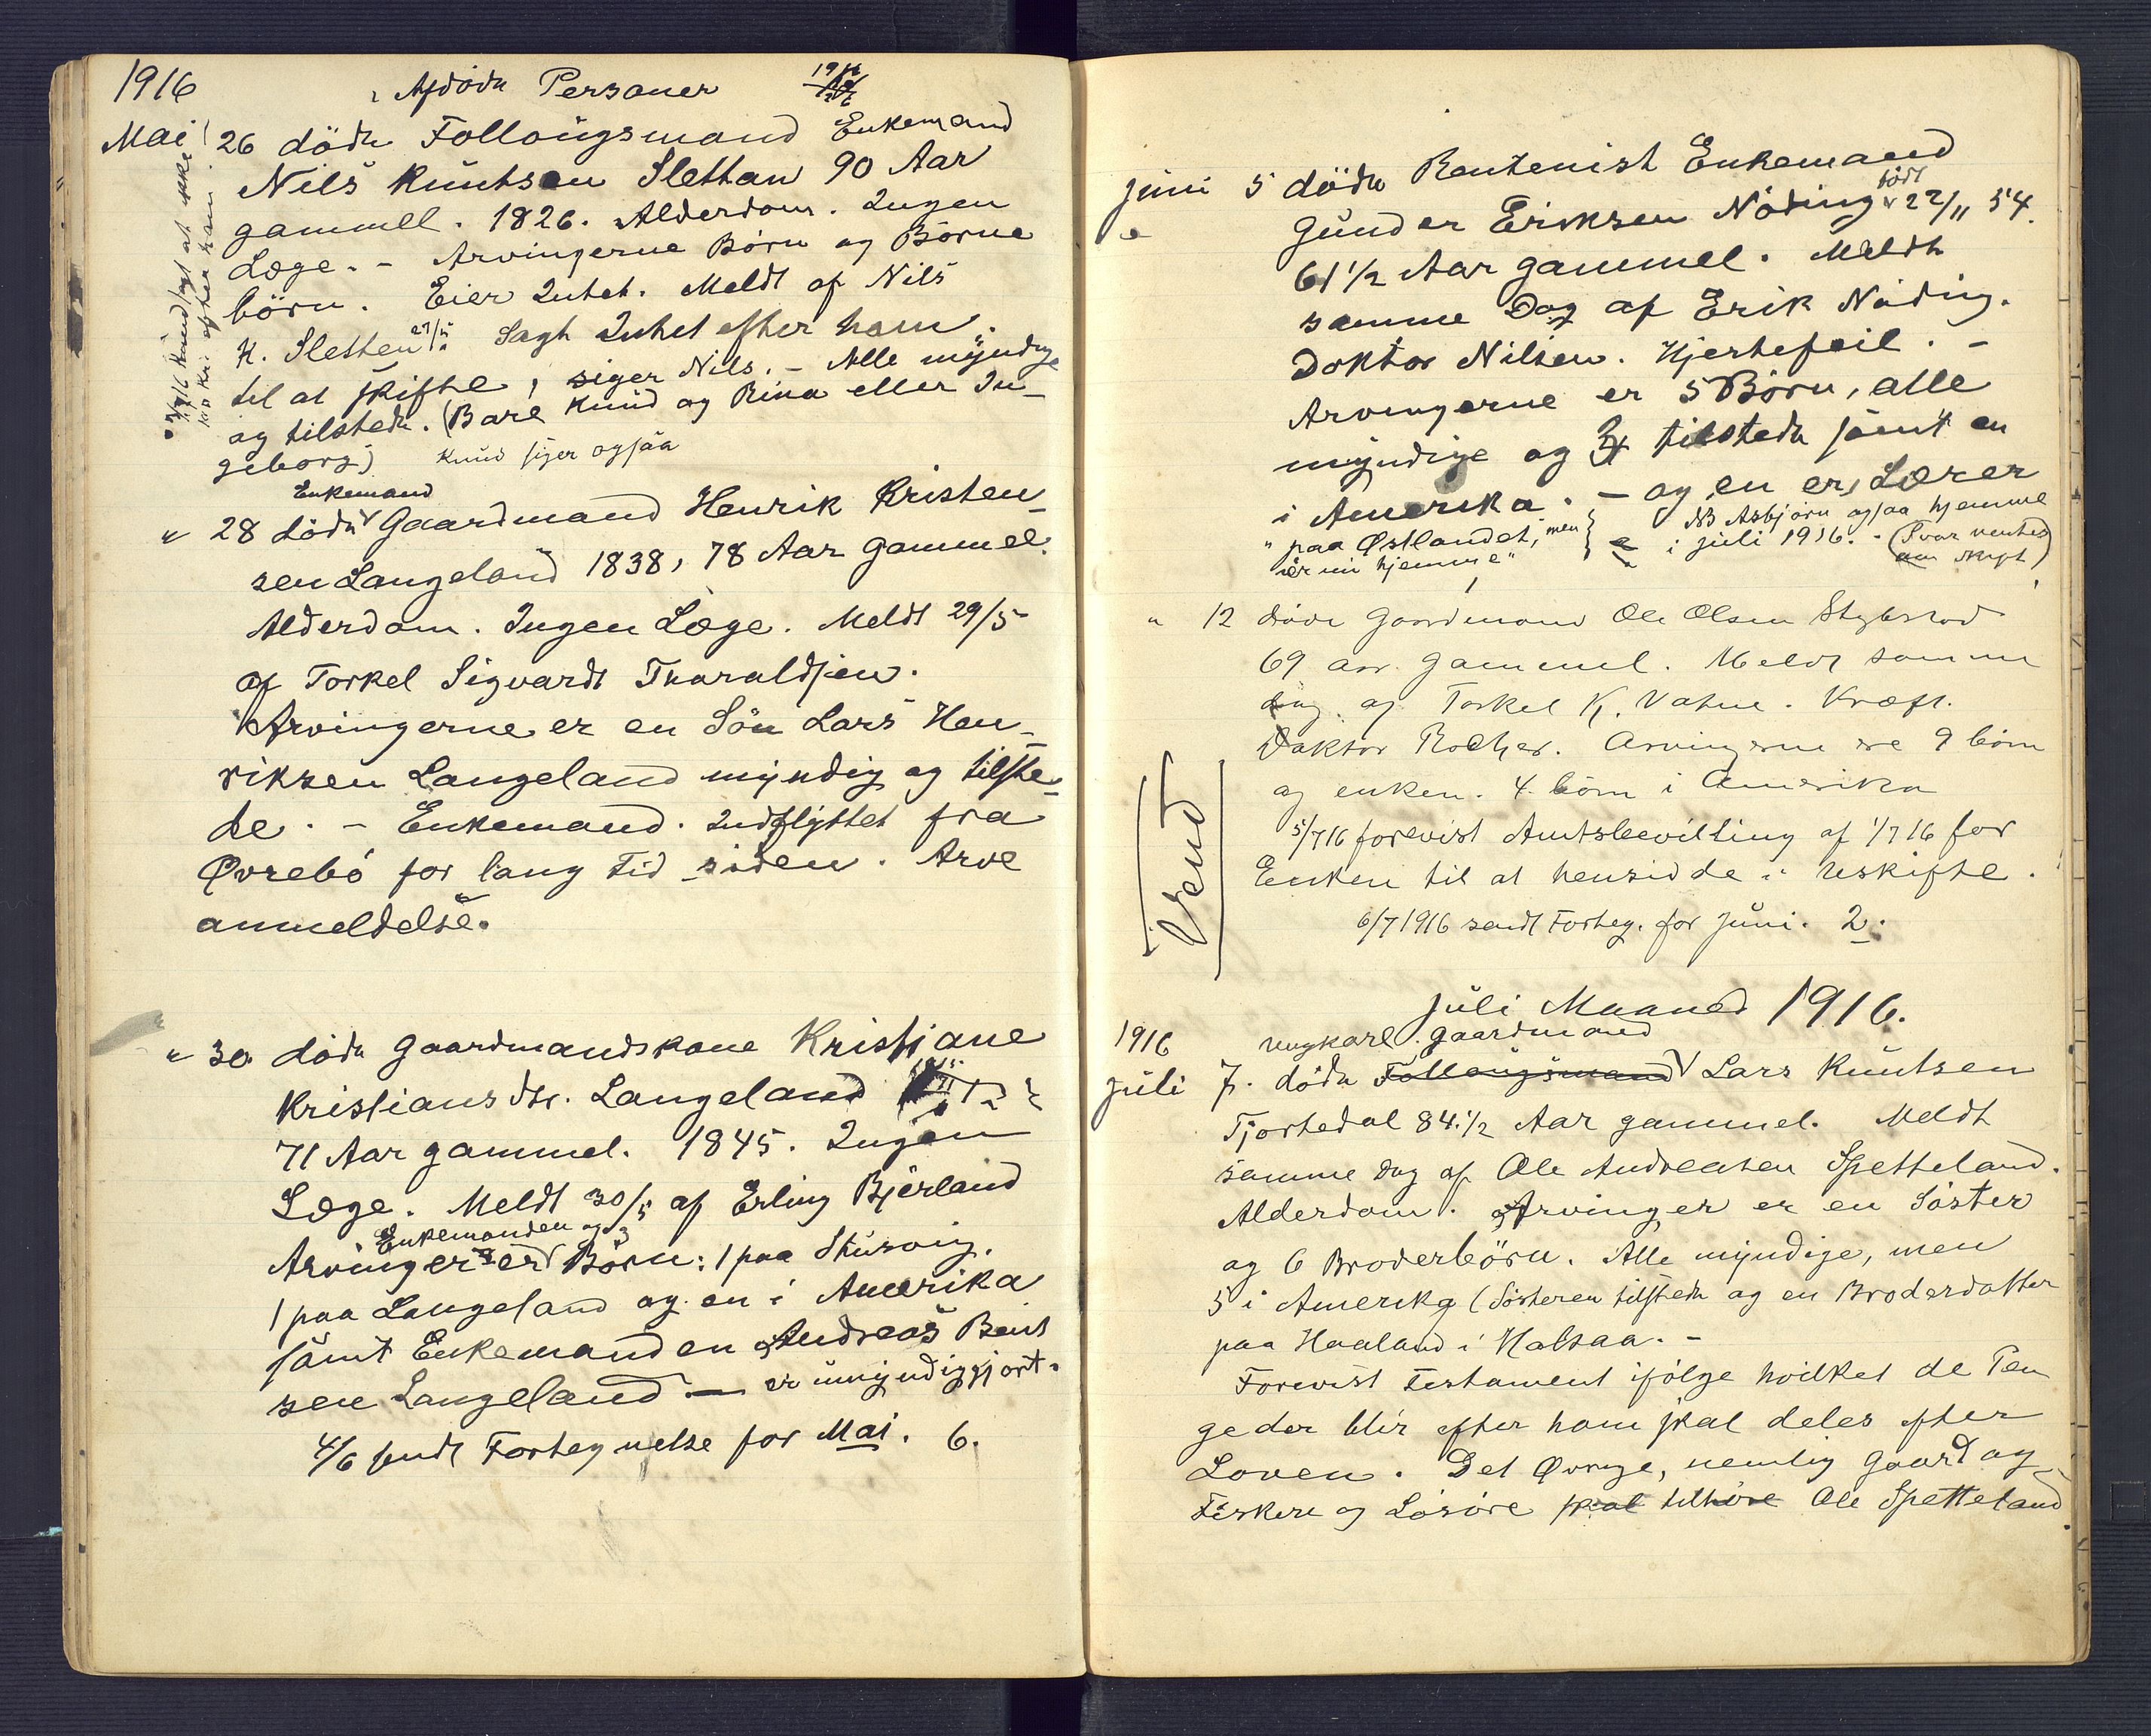 1916 Afdöde Personer
Mai 26 döde Follougsmand Enkemand
Nils Knutsen Slettan 90 Aar
gammel. 1826. Alderdom. Ingen
Læge. - Arvingerne Börn og Börne
börn. Eier Intet. Meldt af Nils
K. Sletten 27/5. Sagt Intet efter ham
til at skifte, siger Nils. - Alle myndige
og tilstede. (Bare Knud og Rina eller In-
geborg) Knud siger ogsaa
Enkemand
" 28 döde Gaardmand Henrik Kristen-
sen Langeland 1838, 78 Aar gammel.
Alderdom. Ingen Læge. Meldt 29/5
af Torkel Sigvardt Tharaldsen.
Arvingerne er en Sön Lars Hen-
riksen Langeland myndig og tilste-
de. - Enkemand. Indflyttet fra
Øvrebö for lang Tid siden. Arve
anmeldelse.
" 30 döde Gaardmandskone Kristiane
Kristiansdtr. Langeland
71 Aar gammel. 1845. Ingen
Læge. Meldt 30/5 af Erling Bjerland
Enkemanden og 3
Arvinger er Börn: 1 paa
1 paa Langeland og en i Amerika
samt Enkemanden Andreas Bent
sen Langeland — er umyndiggjort.
4/6 sendt Fortegnelse for Mai. 6.
Juni 5 döde Rentenist Enkemand
Gunder Eriksen Nöding födt 22/11 54.
61 1/2 Aar gammel. Meldt
samme Dag af Erik Nöding.
Doktor Nilsen. Hjertefeil. -
Arvingerne er 5 Börn, alle
myndige og tilstede samt en
i Amerika. - og en er Lærer
" paa Østlandet, men NB Asbjörn ogsaa hjemme
er nu hjemme" i Juli 1916. - (Svar ventes
om skift)
" 12 döde Gaardmand Ole Olsen
69 aar gammel. Meldt samme
dag af Torkel K. Vatne. Kræft.
Doktor Arvingerne ere 9 börn
og enken. 4 börn i Amerika
5/7 16 forevist Amtsbevilling af 1/7 16 for
Enken til at hensidde i Uskifte.
6/7 1916 sendt Forteg. for Juni. 2.
Juli Maaned 1916.
1916 Ungkarl. Gaardmand
Juli 7. döde Follougsmand Lars Knutsen
Tjortedal 84 1/2 Aar gammel. Meldt
samme Dag af Ole Andreasen Spetteland.
Alderdom. Arvinger er en Söster
og 6 Broderbörn. Alle myndige, men
5 i Amerika (Sösteren tilstede og en Broderdatter
paa Haaland i Halsaa. -
Forevist Testament ifölge hvilket de Pen
ge der blir efter ham skal deles efter
Loven. Det Øvrige, nemlig Gaard og
Fiskeri og Lösöre skal tilhöre Ole Spetteland.